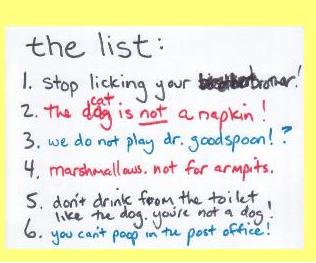 the list:
1. stop licking your brother!
2. the cat is not a napkin!
3. we do not play dr. goodspoon! ?
4. marshmallows. not for armpits.
5. don't drink from the toilet,
like the dog. you're not a dog!
6. you can't poop in the post office!